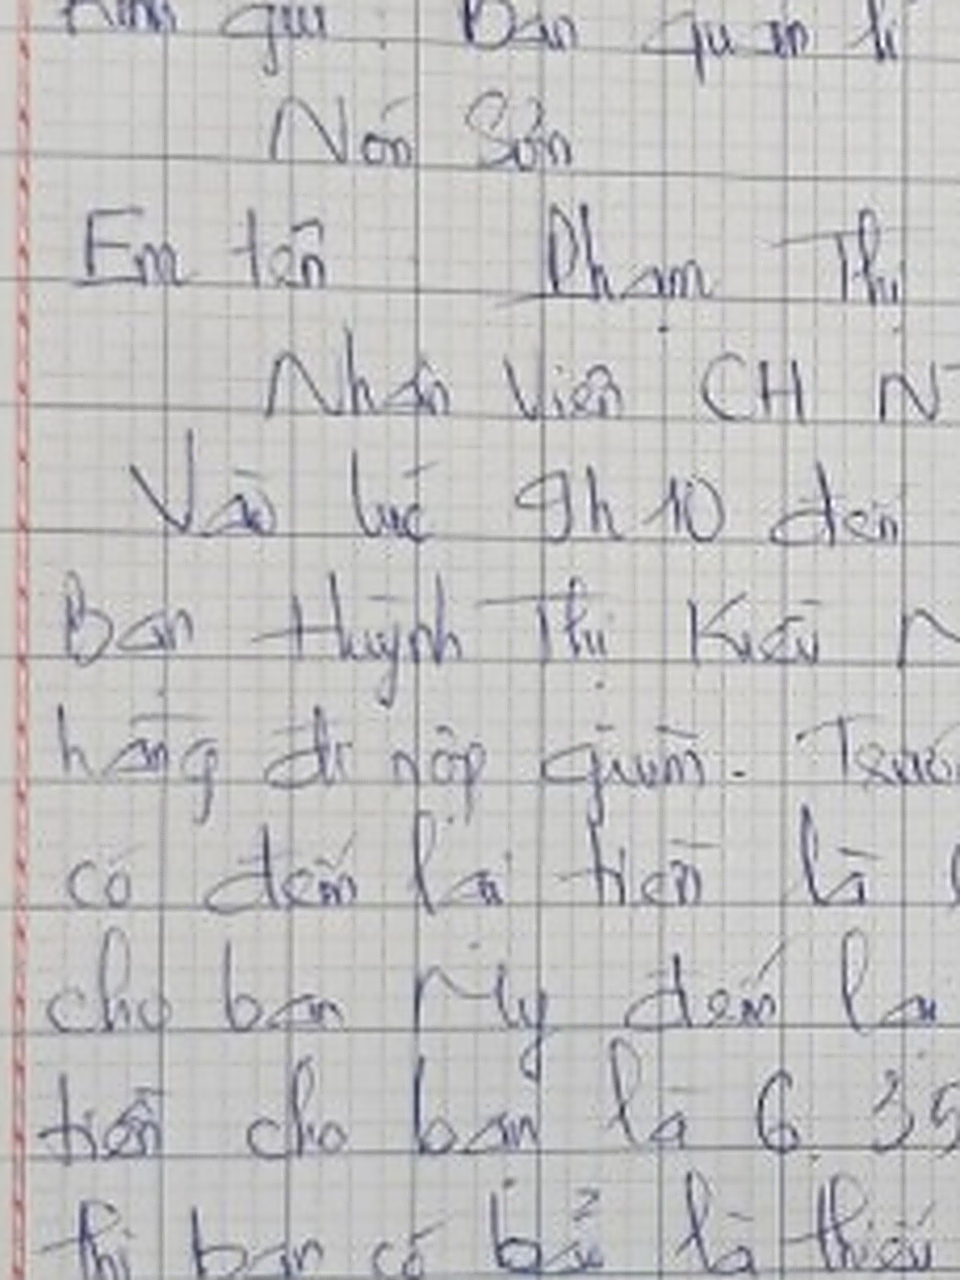 Kính gửi: Ban quản lí
Nón Sơn
Em tên Phạm Thị
Nhân Viên CH N
Vào lúc 9h10 đến
Bạn Huỳnh Thị Kiều
hàng đi nộp giùm. Trước
có đếm lại tiền là
cho bạn My đếm lại
tiền cho bạn là 6.35
thì bạn có bảo là thiếu